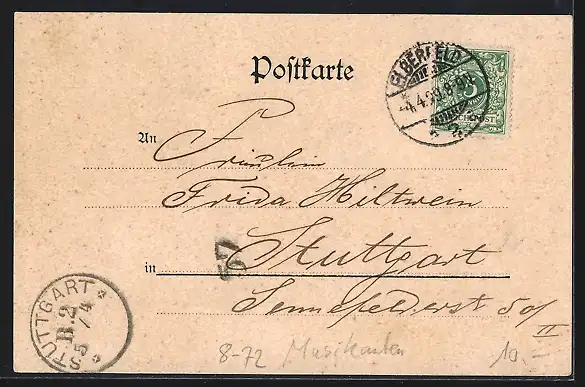 Postkarte
ELBERFELD
4.4.99.
5
An
Fräulein
Frida Hiltwein
57
in Stuttgart
Sennefelderstr. 50/
II
STUTTGART
B.2
5/4
8-72 Musikanten 10.-